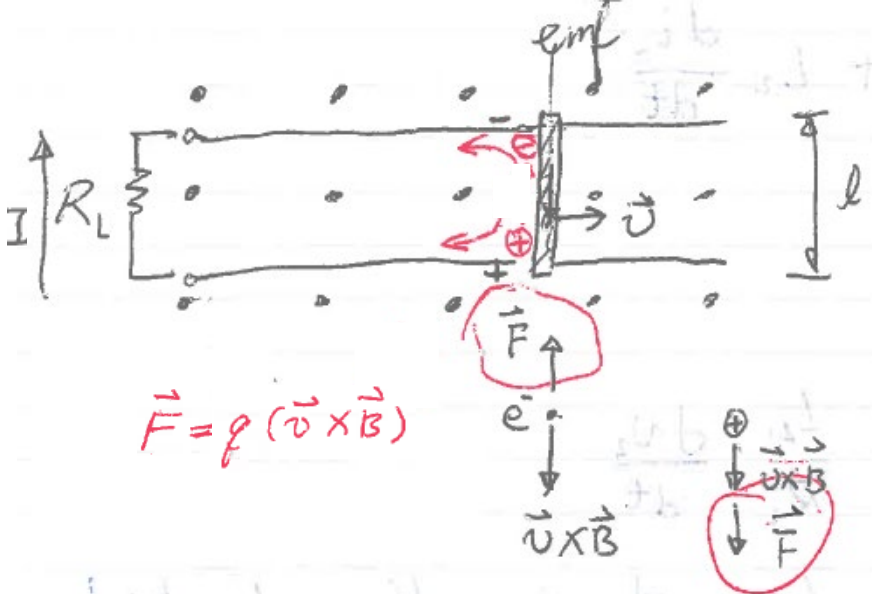 emf
-
⊖
I
R_L
l
⊕
v⃗
+
F⃗
F⃗ = q (v⃗ × B⃗)
e⁻
⊕
v⃗ × B⃗
v⃗ × B⃗
F⃗